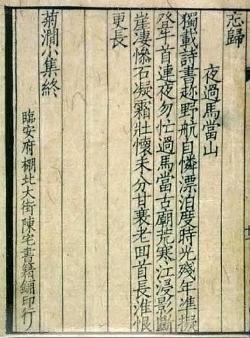 忘歸
夜過馬當山
獨載詩書趂野航自憐漂泊度時光殘年准擬
登牛首連夜匆忙過馬當古廟荒寒江浸影斷
崖凄慘石凝霜壯懷未分甘衰老回首長淮恨
更長
菊澗小集終
臨安府棚北大街陳宅書籍鋪印行